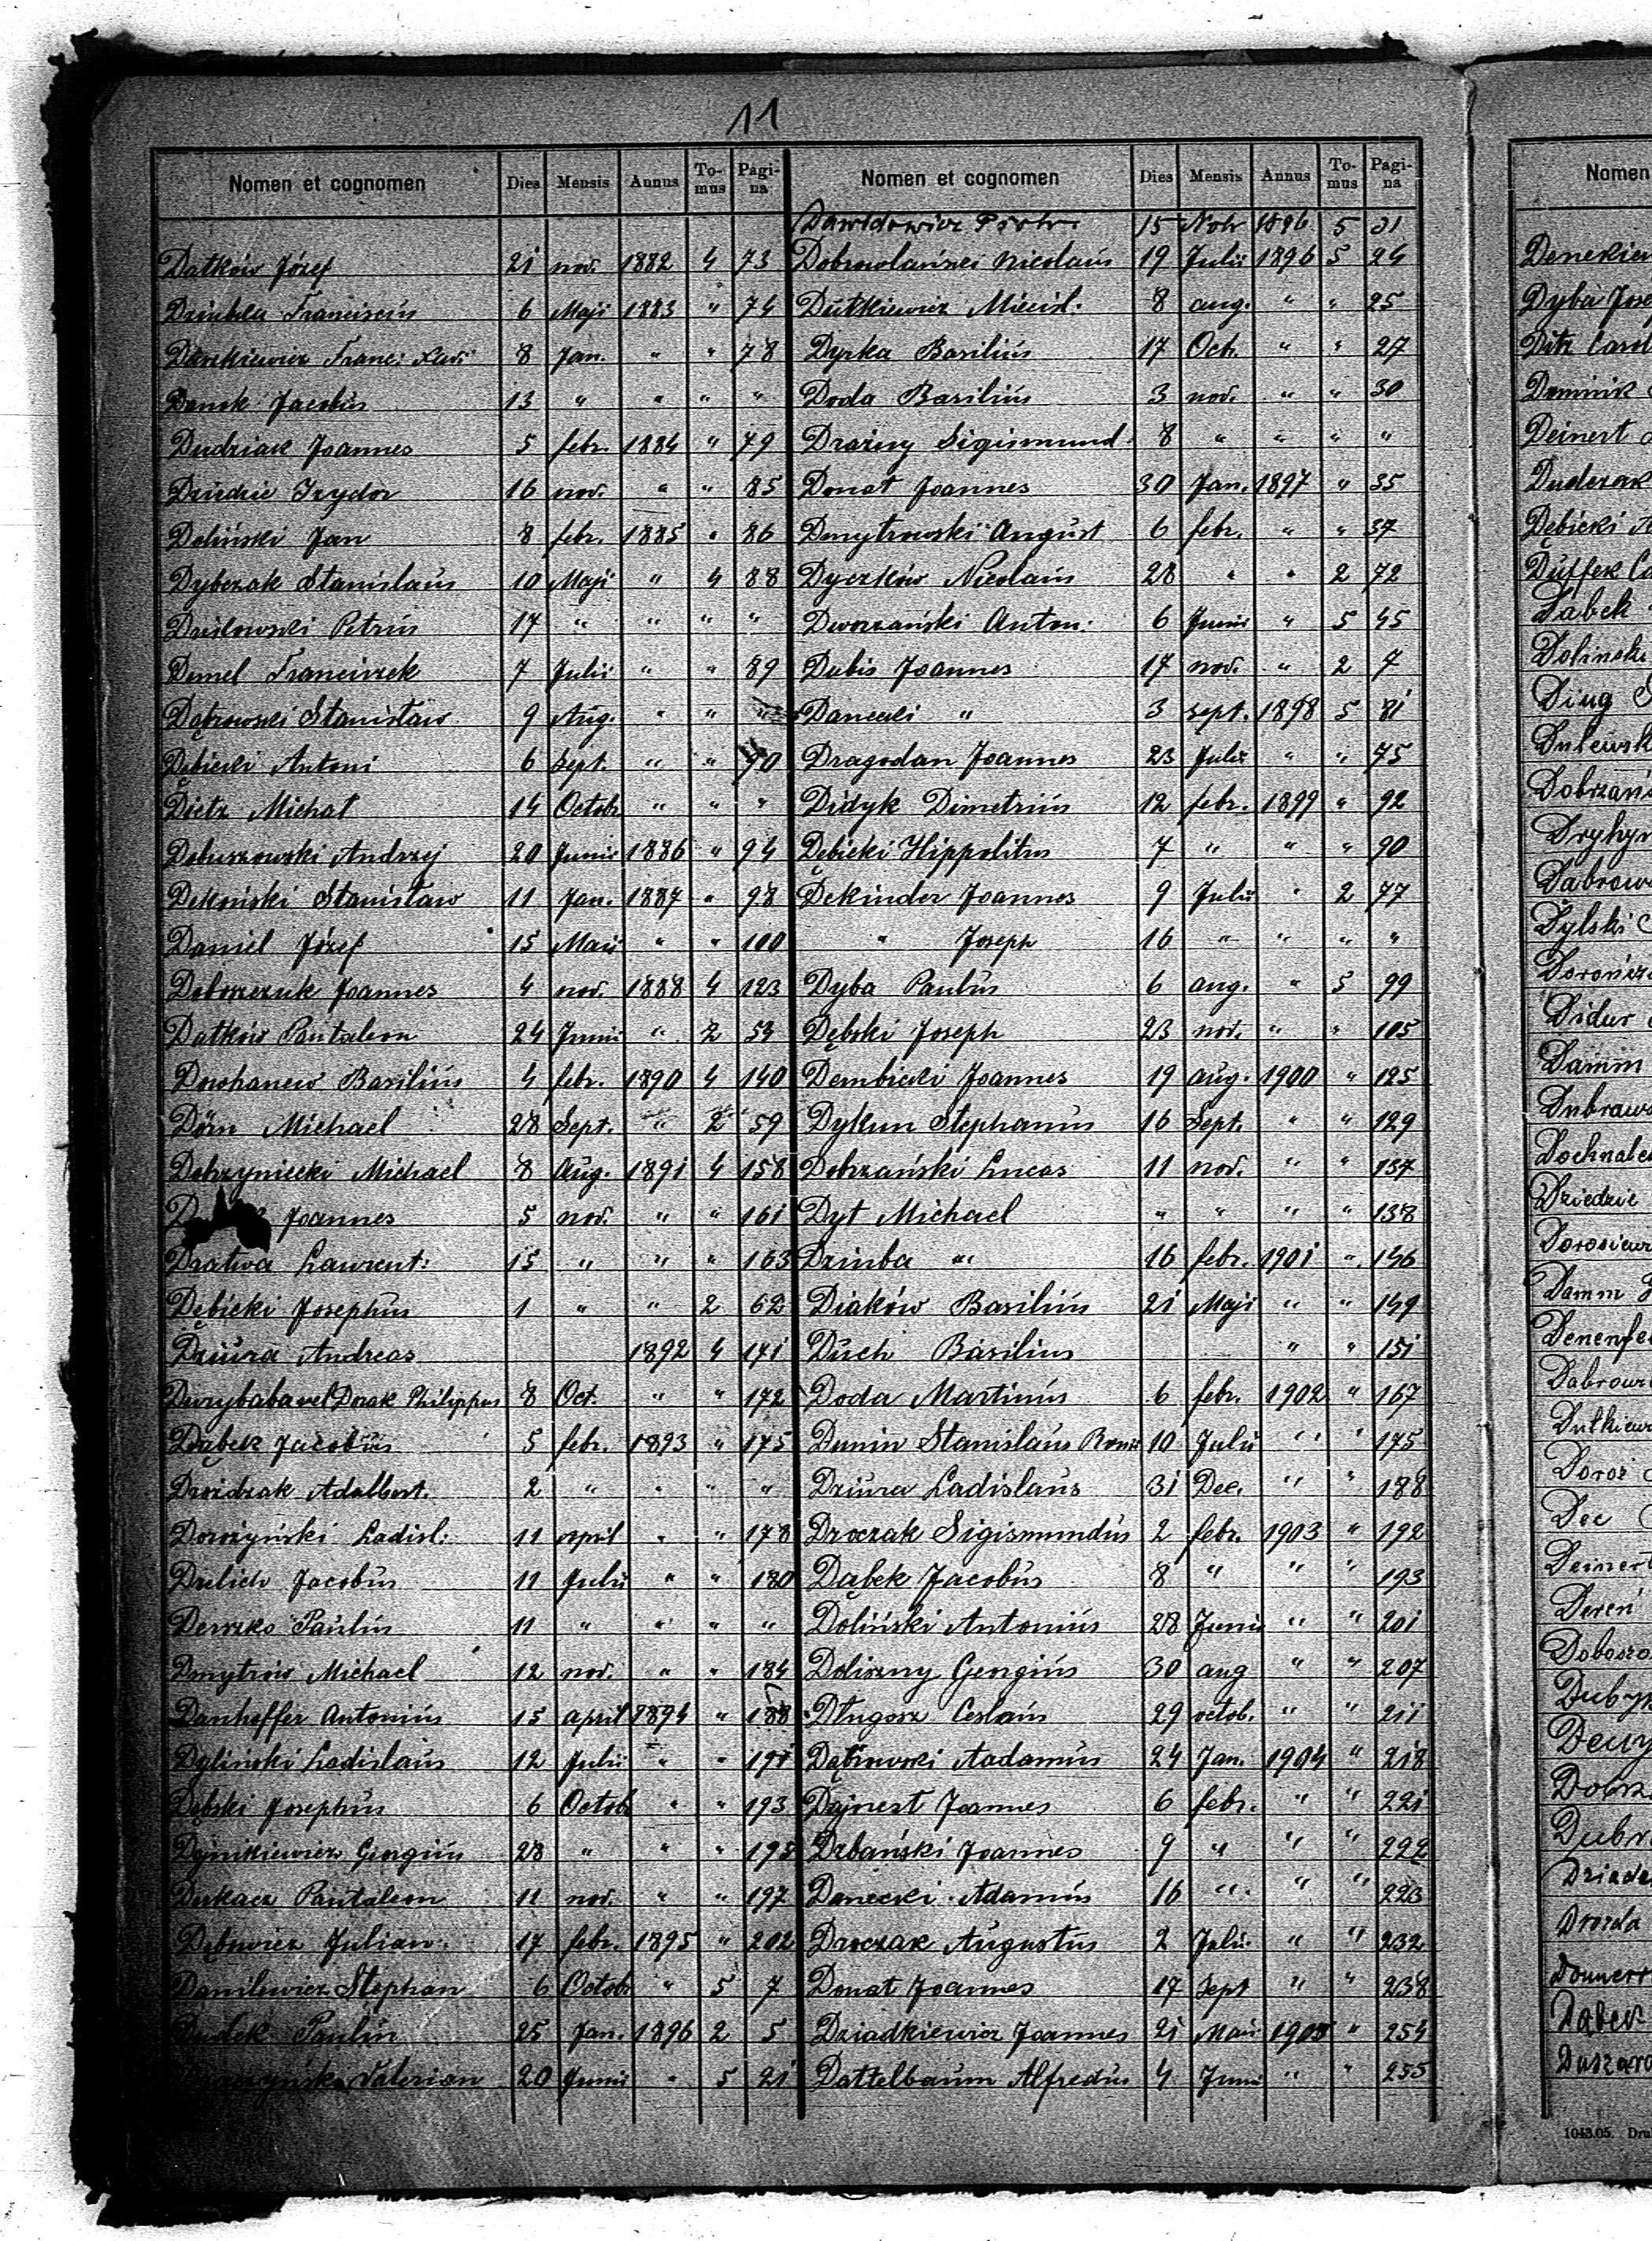 11
Nomen et cognomen Dies Mensis Annus To-mus Pagi-na
Datków Józef 21 nov. 1882 4 73
Dziubla Franciscus 6 Maji 1883 " 74
Franc: Xav: 8 Jan. " " 78
Danok Jacobus 13 " " " "
Dudziak Joannes 5 febr. 1884 " 79
Izydor 16 nov. " " 85
Doliński Jan 8 febr. 1885 " 86
Dybczak Stanislaus 10 Maji " 4 88
Petrus 17 " " " "
Demel Franciszek 7 Julii " " 89
Dąbrowski Stanisław 9 Aug. " " "
Dębicki Antoni 6 Sept. " " 90
Dietz Michał 14 Octob " " "
Dobuszowski Andrzej 20 Junii 1886 " 94
Dekoński Stanisław 11 Jan. 1887 " 98
Daniel Józef 15 Maii " " 100
Doboszczuk Joannes 4 nov. 1888 4 123
Datków Pantaleon 24 Junii " 2 53
Dowhanew Basilius 4 febr. 1890 4 140
Dörn Michael 28 Sept. " 2 59
Dobrzyniecki Michael 8 Aug. 1891 4 158
Joannes 5 nov. " " 161
Dratwa Laurent: 15 " " " 163
Dębicki Josephus 1 " " 2 62
Dziura Andreas 1892 4 171
Dwrybaba vel Dzak Philippus 8 Oct. " " 172
Dąbek Jacobus 5 febr. 1893 " 175
Droździak Adalbert. 2 " " " "
Dorożyński Ladisl: 11 april " " 178
Drelich Jacobus 11 Julii " " 180
Derszko Paulin 11 " " " "
Dmytrów Michael 12 nov. " " 184
Danheffer Antonius 15 april 1894 " 188
Dyliński Ladislaus 12 Julii " " 191
Dębski Josephus 6 Octob " " 193
Dejnikiewicz Georgius 28 " " " 195
Dukacz Pantaleon 11 nov. " " 197
Dębowicz Julian: 17 febr. 1895 " 202
Danilewicz Stephan 6 Octob " 5 7
Dudek Paulin 25 Jan. 1896 2 5
Valerian 20 Junii " 5 21
Nomen et cognomen Dies Mensis Annus To-mus Pagi-na
Dawidowicz Piotr. 15 Nobr 1896 5 31
Dobrowolański Nicolaus 19 Julii 1896 5 24
Dutkiewicz Miecisl. 8 aug. " " 25
Dyrka Basilius 17 Oct. " " 27
Doda Basilius 3 nov. " " 30
Drażny Sigismund. 8 " " " "
Donat Joannes 30 Jan. 1897 " 35
Dmytrowski August 6 febr. " " 37
Dyczków Nicolaus 28 " " 2 72
Dworzański Anton: 6 Junii " 5 45
Dubis Joannes 17 nov. " 2 7
Danecki " 3 sept. 1898 5 81
Dragodan Joannes 23 Julii " " 75
Didyk Dimetrius 12 febr. 1899 " 92
Dębicki Hippolitus 7 " " " 90
Dekinder Joannes 9 Julii " 2 77
" Joseph 16 " " " "
Dyba Paulus 6 aug. " 5 99
Dębski Joseph 23 nov. " " 105
Dembicki Joannes 19 aug. 1900 " 125
Dykun Stephanus 16 Sept. " " 129
Dobrzański Lucas 11 nov. " " 137
Dyt Michael " " " " 138
Dziuba " 16 febr. 1901 " 146
Diaków Basilius 21 Maji " " 149
Duch Basilius " " 151
Doda Martinus 6 febr. 1902 " 167
Dunin Stanislaus 10 Julii " " 175
Dziura Ladislaus 31 Dec. " " 188
Droczak Sigismundus 2 febr. 1903 " 192
Dąbek Jacobus 8 " " " 193
Doliński Antonius 28 Junii " " 201
Doliszny Georgius 30 aug " " 207
Długosz Ceslaus 29 octob. " " 211
Dąbrowski Aadamus 24 Jan. 1904 " 218
Dajnert Joannes 6 febr. " " 221
Drbański Joannes 9 " " " 222
Danecki Adamus 16 " " " 223
Droczak Augustus 2 Julii " " 232
Donat Joannes 17 Sept " " 238
Dziadkiewicz Joannes 21 Maii 1905 " 254
Dattelbaum Alfredus 4 Junii " " 255
Nomen
Dyba Jose
Ditz Carol
Dominik
Deinert
Dudczak
Dębicki A
Duffek Ca
Dąbek
Dolinski
Dobrzans
Dylski
Didur
Damm
Dubraws
Dochnale
Dziedzic
Damm
Denenfe
Doroż
Dec
Deinert
Deren
Drozda
Dąbek
1043.05. Dru